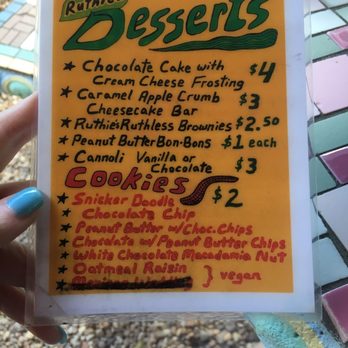 Ruthie's
Desserts
Chocolate Cake with
Cream Cheese Frosting $4
Caramel Apple Crumb
Cheesecake Bar $3
Ruthie's Ruthless Brownies $2.50
Peanut Butter Bon-Bons $1 each
Cannoli Vanilla or
Chocolate $3
Cookies $2
Snicker Doodle
Chocolate Chip
Peanut Butter w/ Choc. Chips
Chocolate w/ Peanut Butter Chips
White Chocolate Macadamia Nut
Oatmeal Raisin } vegan